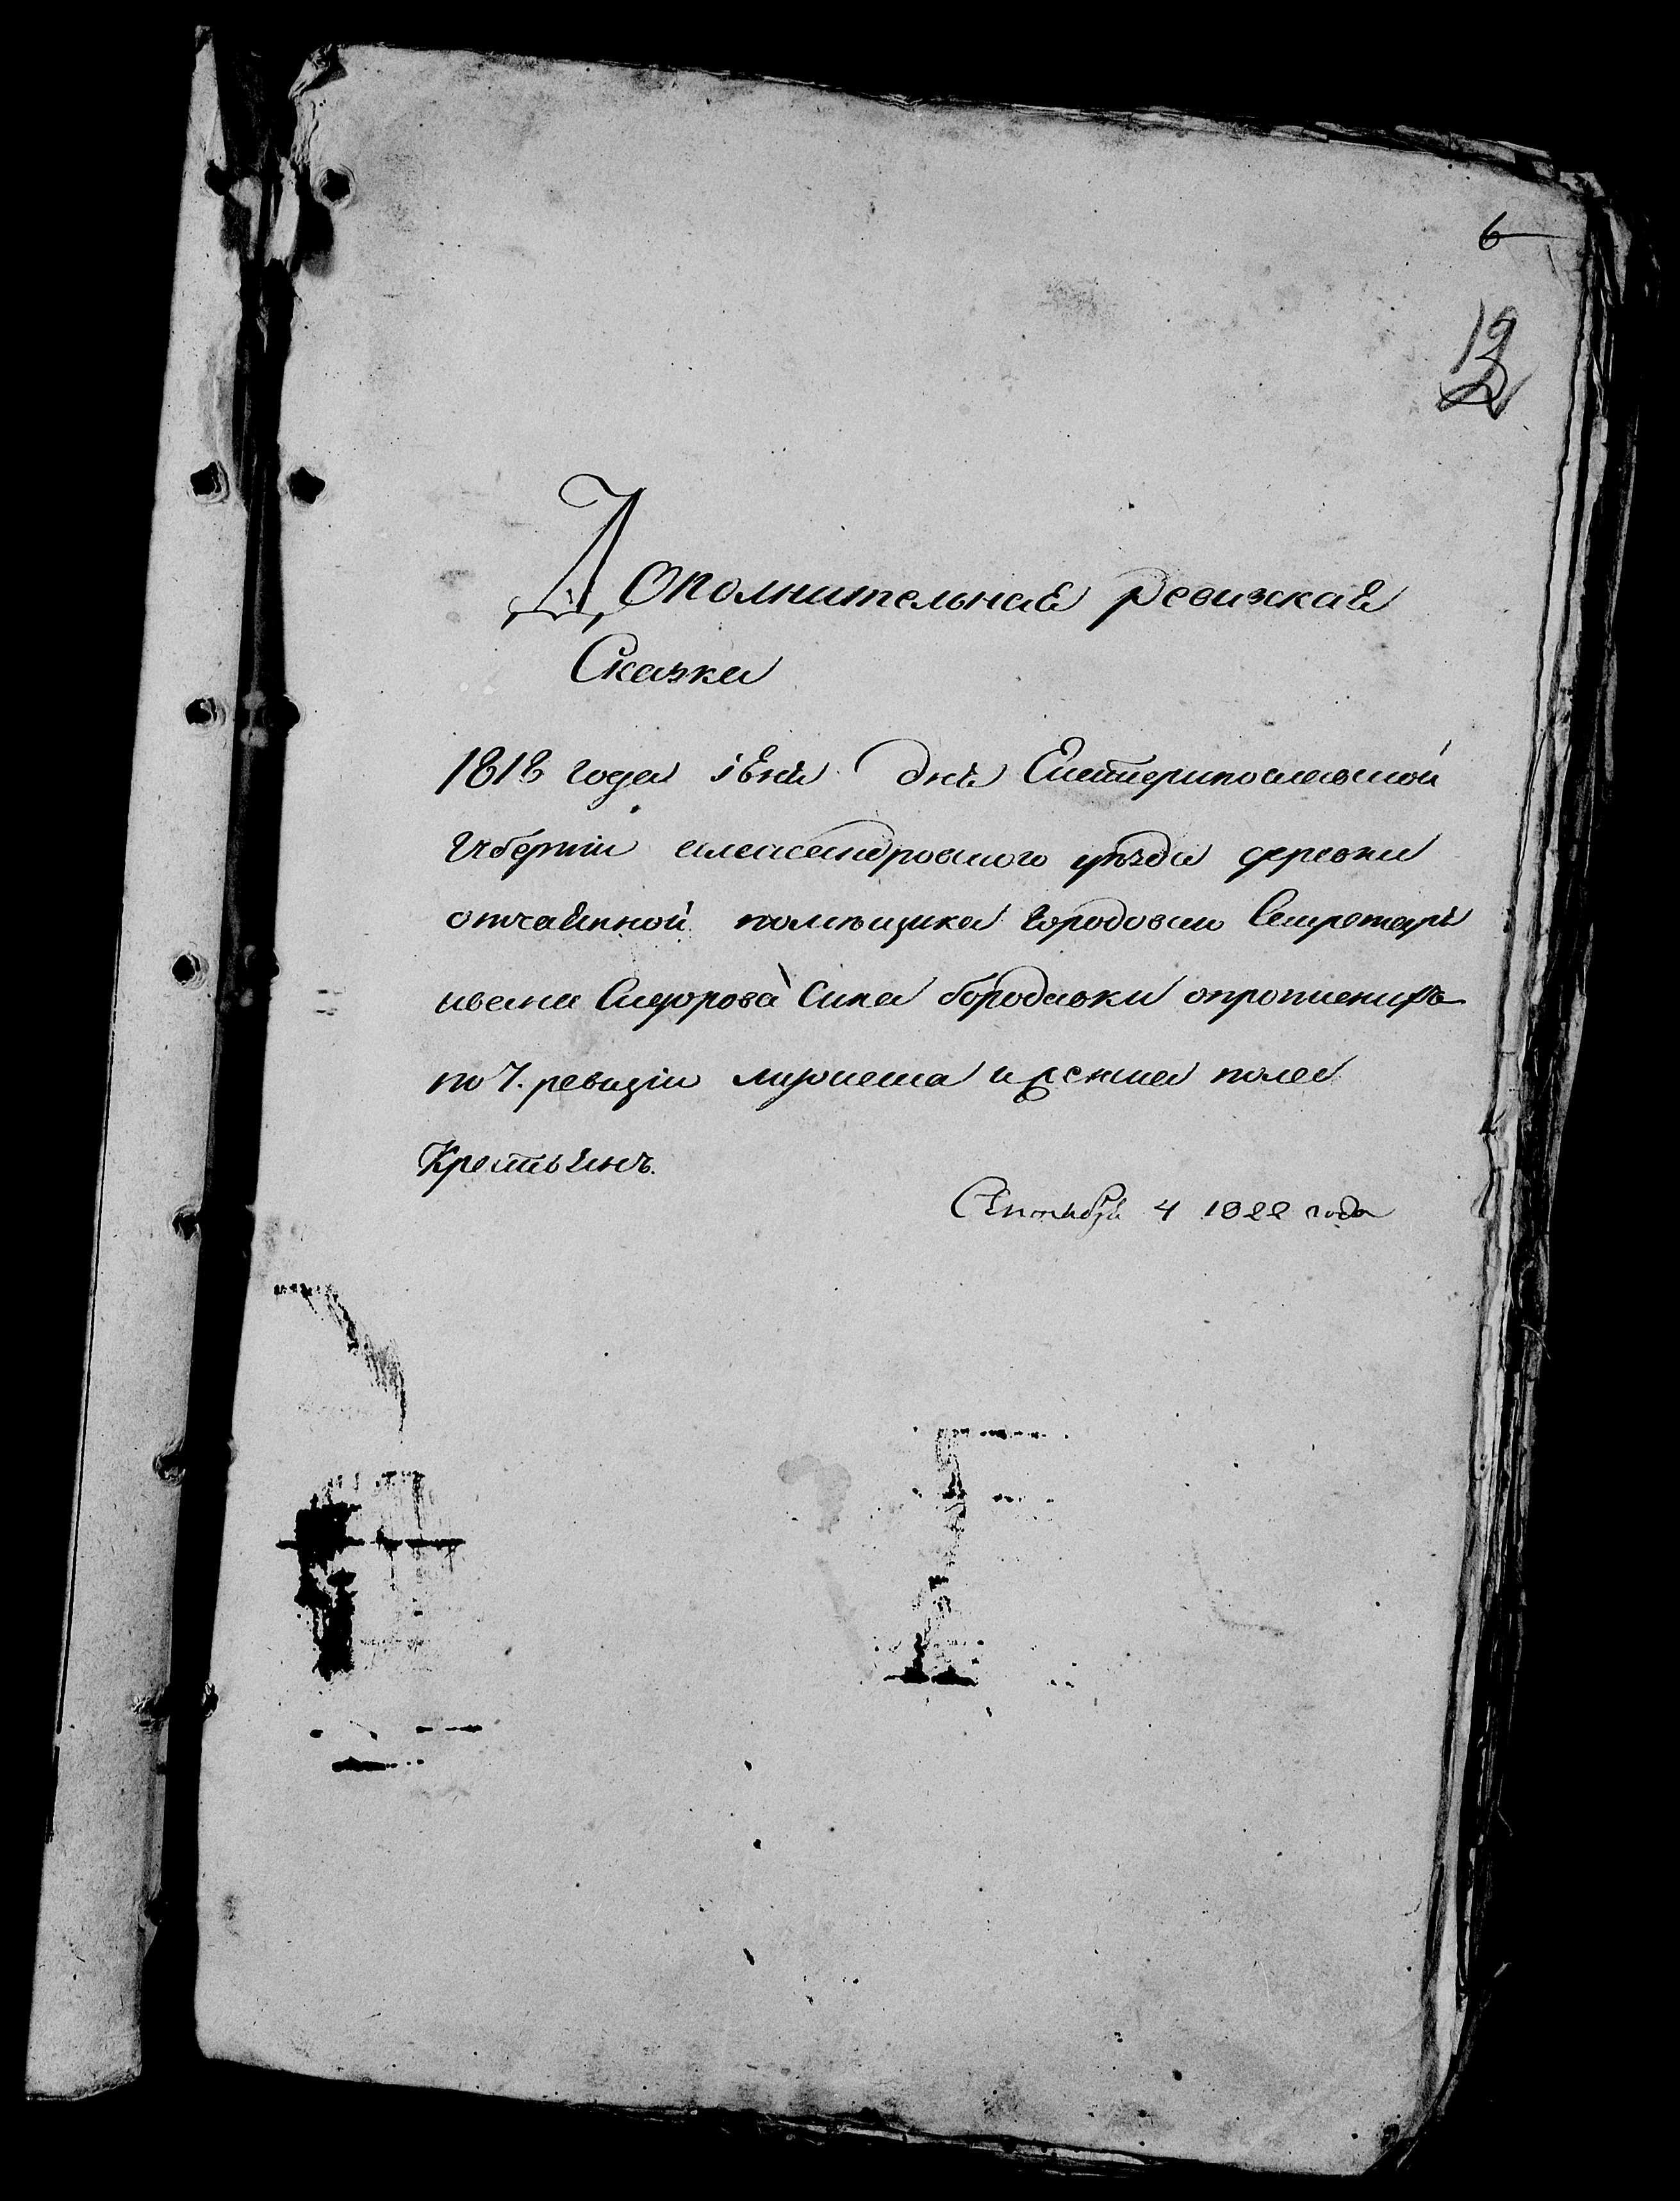 6
12
Дополнительная ревизская
Сказка
1818 года іюня дня Екатеринославской
губерніи александровского уѣзда деревни
отчаянной помѣщика городоваго Секретаря
ивана Сидорова Сина бородавки опропиених
по 7. ревизіи мужеска и женска пола
Крестьянъ.
Сентября 4 1822 года